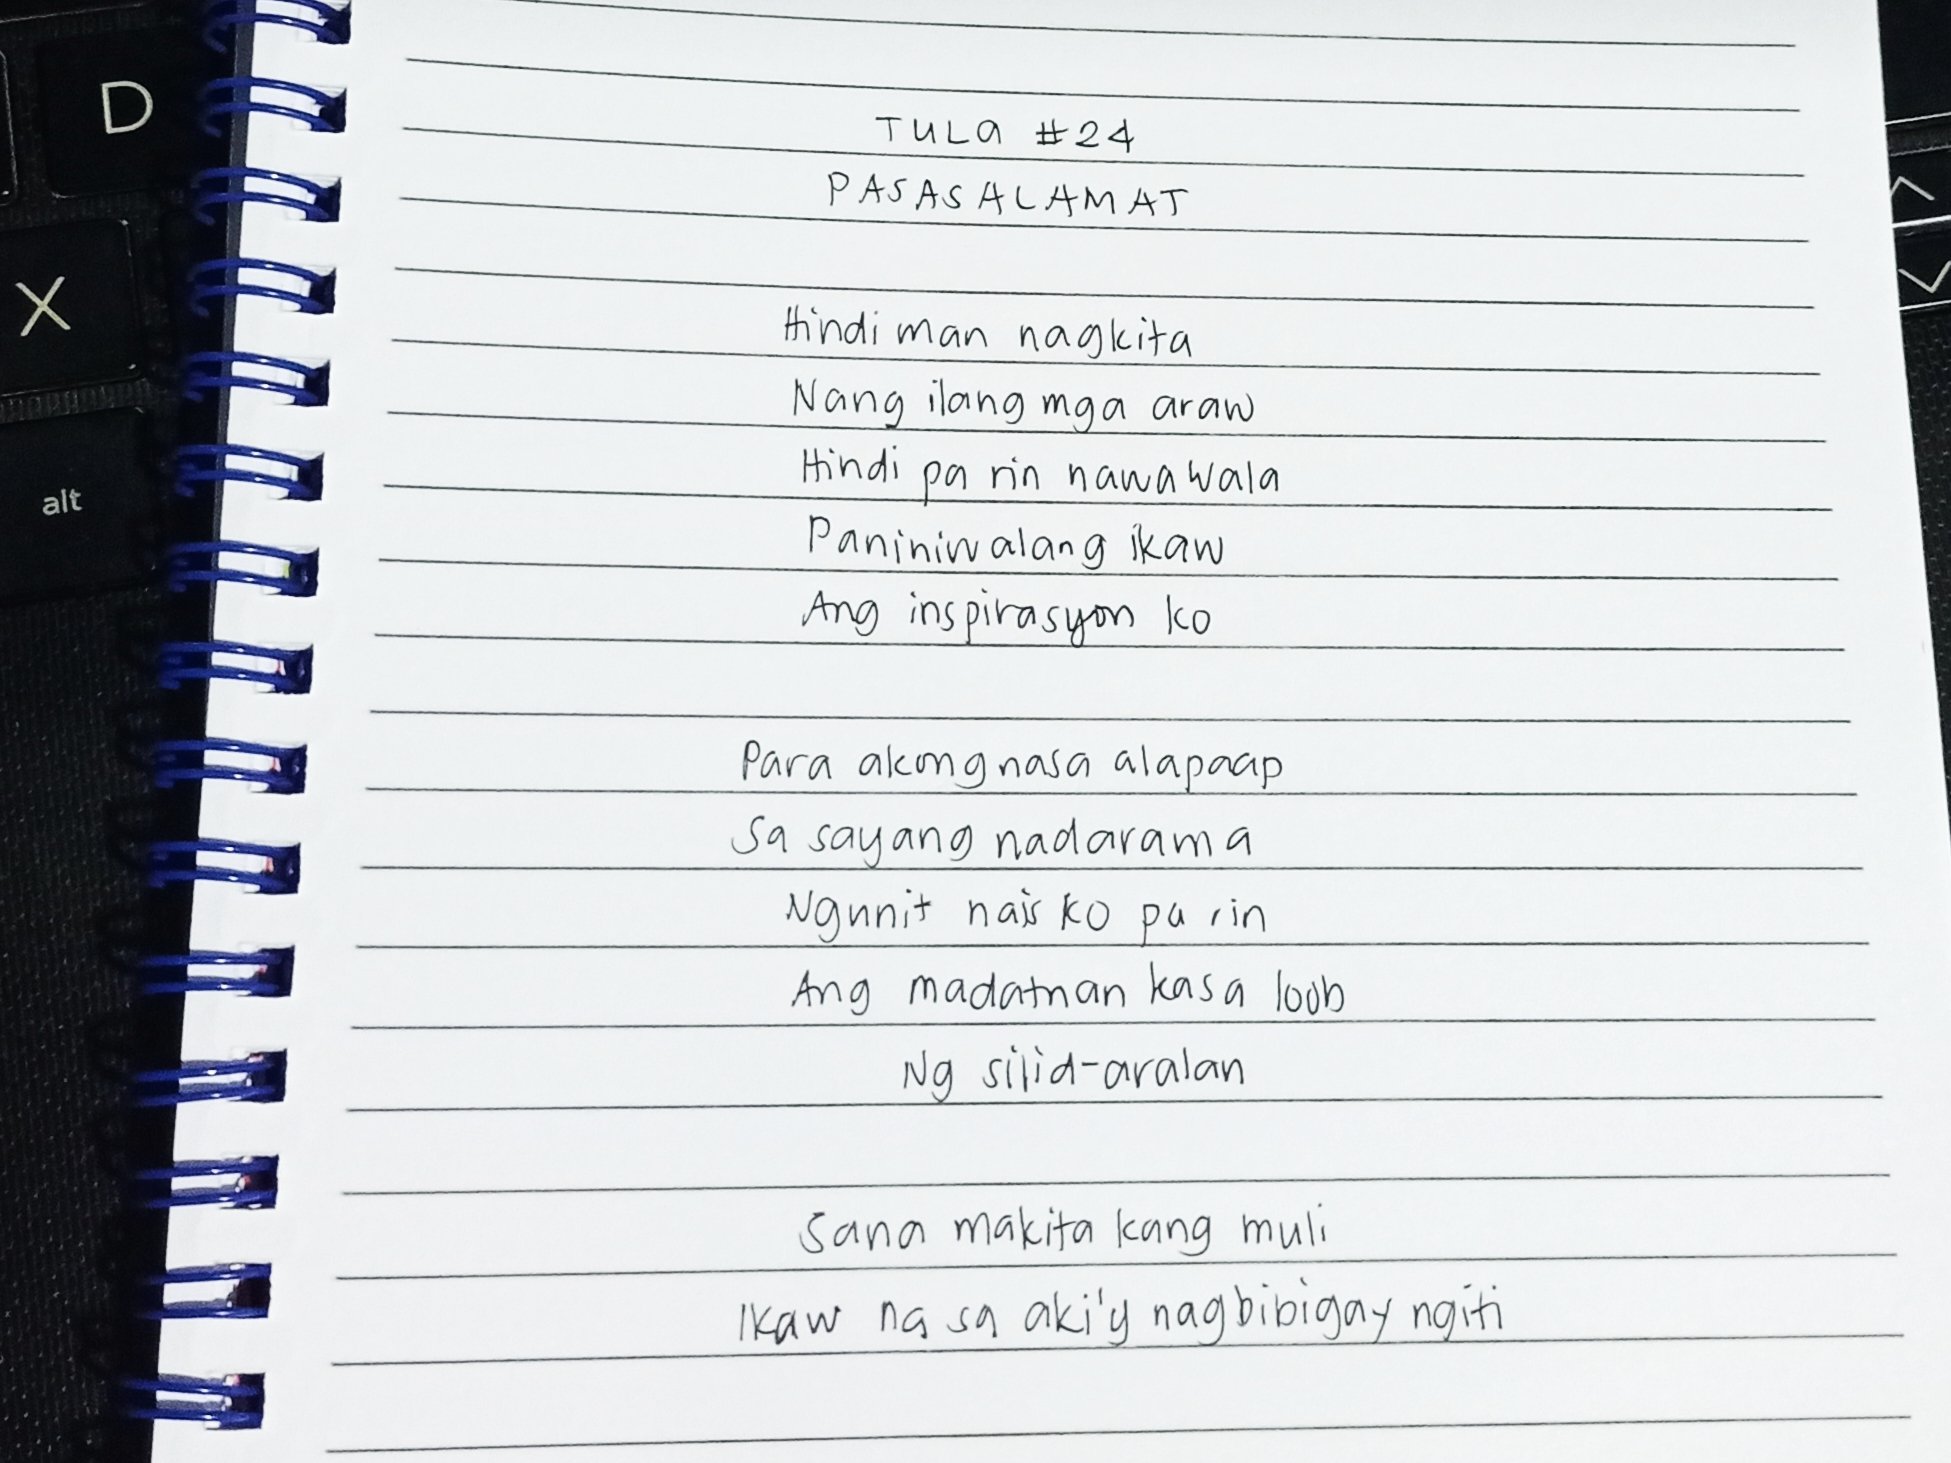 D
X
alt
TULA #24
PASASALAMAT
Hindi man nagkita
Nang ilang mga araw
Hindi pa rin nawawala
Paniniwalang ikaw
Ang inspirasyon ko
Para akong nasa alapaap
Sa sayang nadarama
Ngunit nais ko pa rin
Ang madatnan ka sa loob
Ng silid-aralan
Sana makita kang muli
Ikaw na sa aki'y nagbibigay ngiti